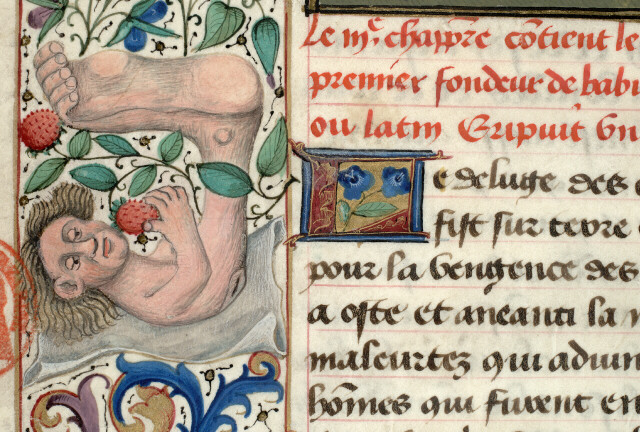 Le iiie chappitre cōtient le
premier fondeur de babi
ou latin Eripuit vn
Le deluge des
fist sur terre
pour la vengence des
a oste et aneanti la
maleurtez qui aduin
hōmes qui furent en